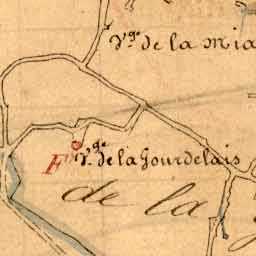 V.ge de la Mia
F.e V.ge de la Gourdelais
de la